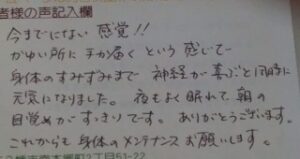 者様の声記入欄
今までにない感覚!!
かゆい所に手が届くという感じで
身体のすみずみまで 神経が喜ぶと同時に
元気になりました。夜もよく眠れて、朝の
目覚めがすっきりです。ありがとうございます。
これからも身体のメンテナンスお願いします。
2丁目51-22